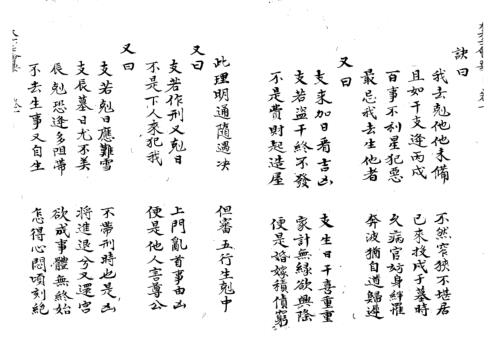 訣曰
我去剋他他未備 不然窄狹不堪居
且如干支逢丙戌 已來投戌子墓時
百事不利星犯惡 久病官妨身絆羅
最忌我去生他者 奔波猶自道歸遲
又曰
支來加日看吉凶 支生日干喜重重
支若盜干終不發 家計無緣欲興隆
不是費財起造屋 便是婚嫁積債窮
此理明通隨遇决 但審五行生剋中
又曰
支若作刑又剋日 上門亂首事由凶
不是下人來犯我 便是他人害尊公
又曰
支若剋日應難雪 不帶刑時也是凶
支辰墓日尤不美 將進退兮又還宮
辰剋恐逢多阻滯 欲成事體無終始
不去生事又自生 怎得心悶頃刻絕